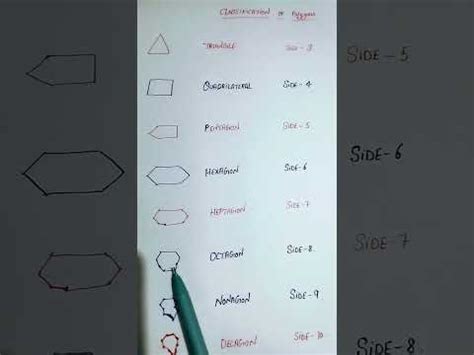 CLASSIFICATION OF POLYGON
TRIANGLE SIDE - 3
QUADRILATERAL SIDE - 4
PENTAGON SIDE - 5
HEXAGION SIDE - 6
HEPTAGION SIDE - 7
OCTAGION SIDE - 8
NONAGION SIDE - 9
DECAGION SIDE - 10
SIDE - 5
SIDE - 6
SIDE - 7
SIDE - 8